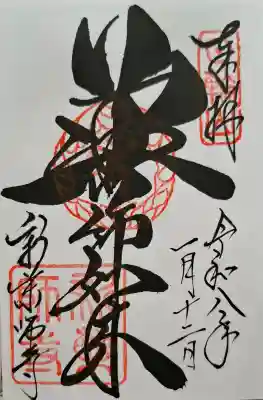 奉拝
令和八年
一月十二日
薬師如来
新薬師寺